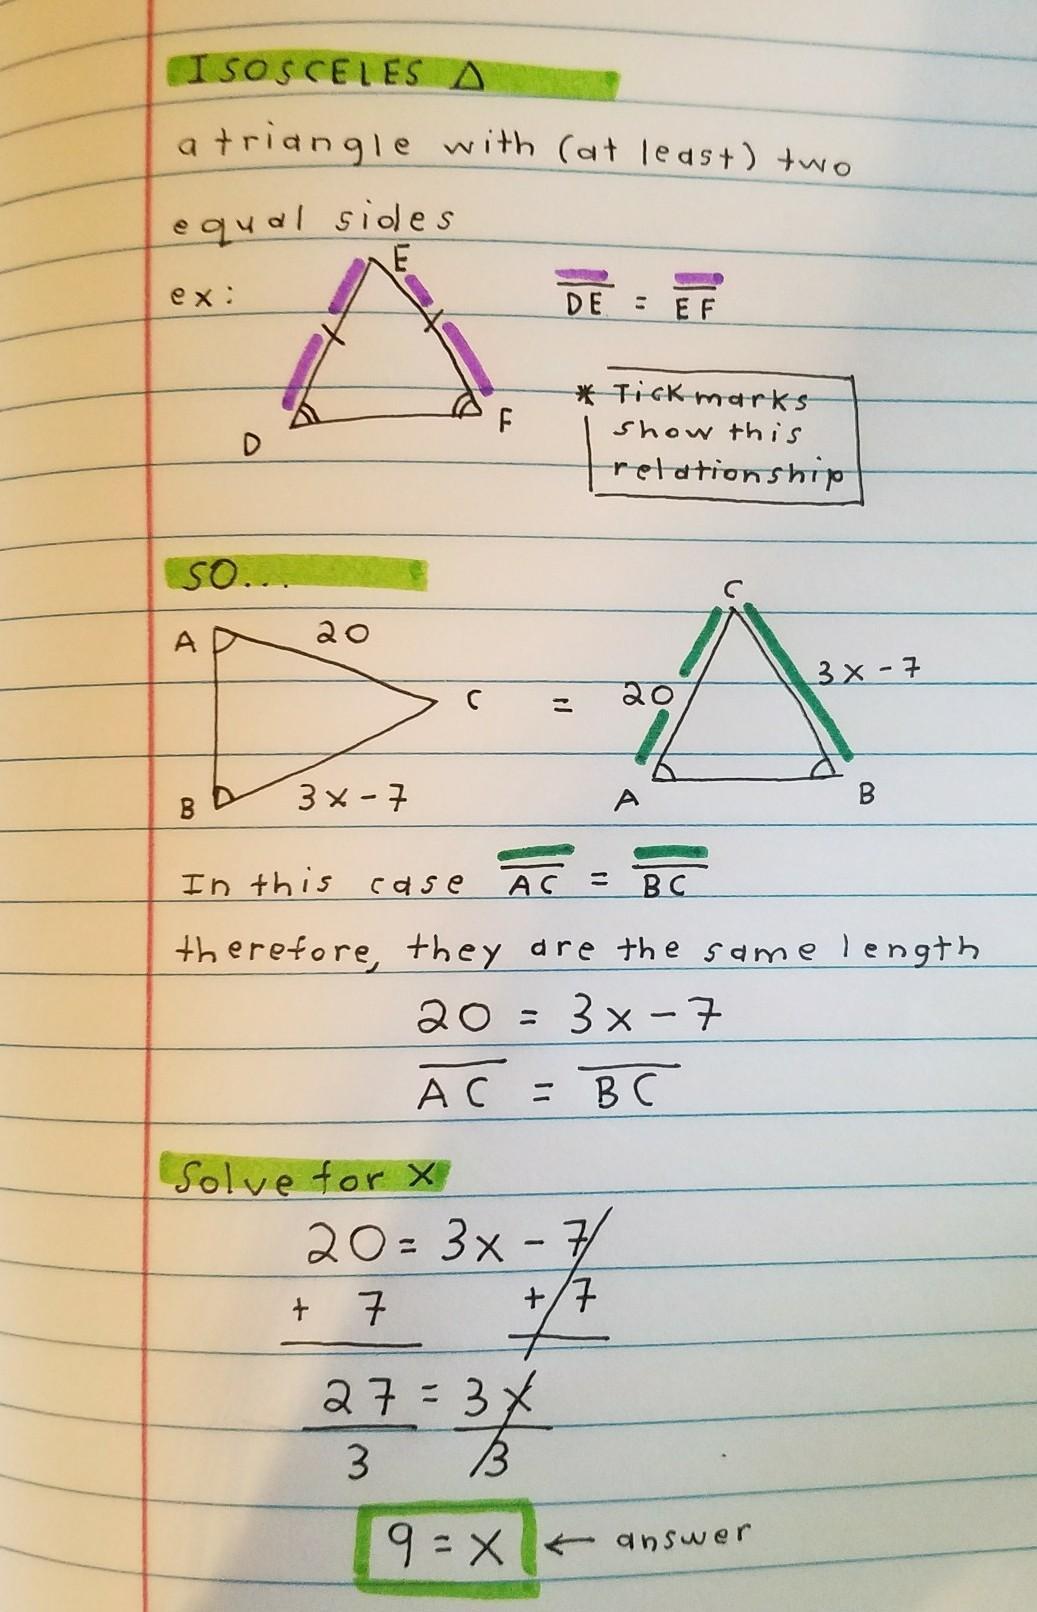 ISOSCELES Δ
a triangle with (at least) two
equal sides
ex:
E
D
F
DE = EF
* Tick marks
show this
relationship
SO...
A
20
C
B
3x-7
=
C
20
3x-7
A
B
In this case AC = BC
therefore, they are the same length
20 = 3x-7
AC = BC
Solve for X
20 = 3x - 7
+ 7 + 7
27 = 3x
3 3
9 = x ← answer